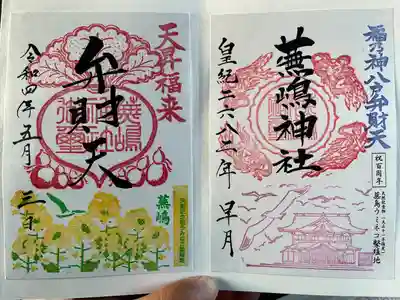 福乃神八戸弁財天
祝百周年
蕪島うミネコ繁殖地
蕪嶋神社
皇紀二六八二年 早月
天昇福来
弁財天
令和四年五月三
蕪嶋